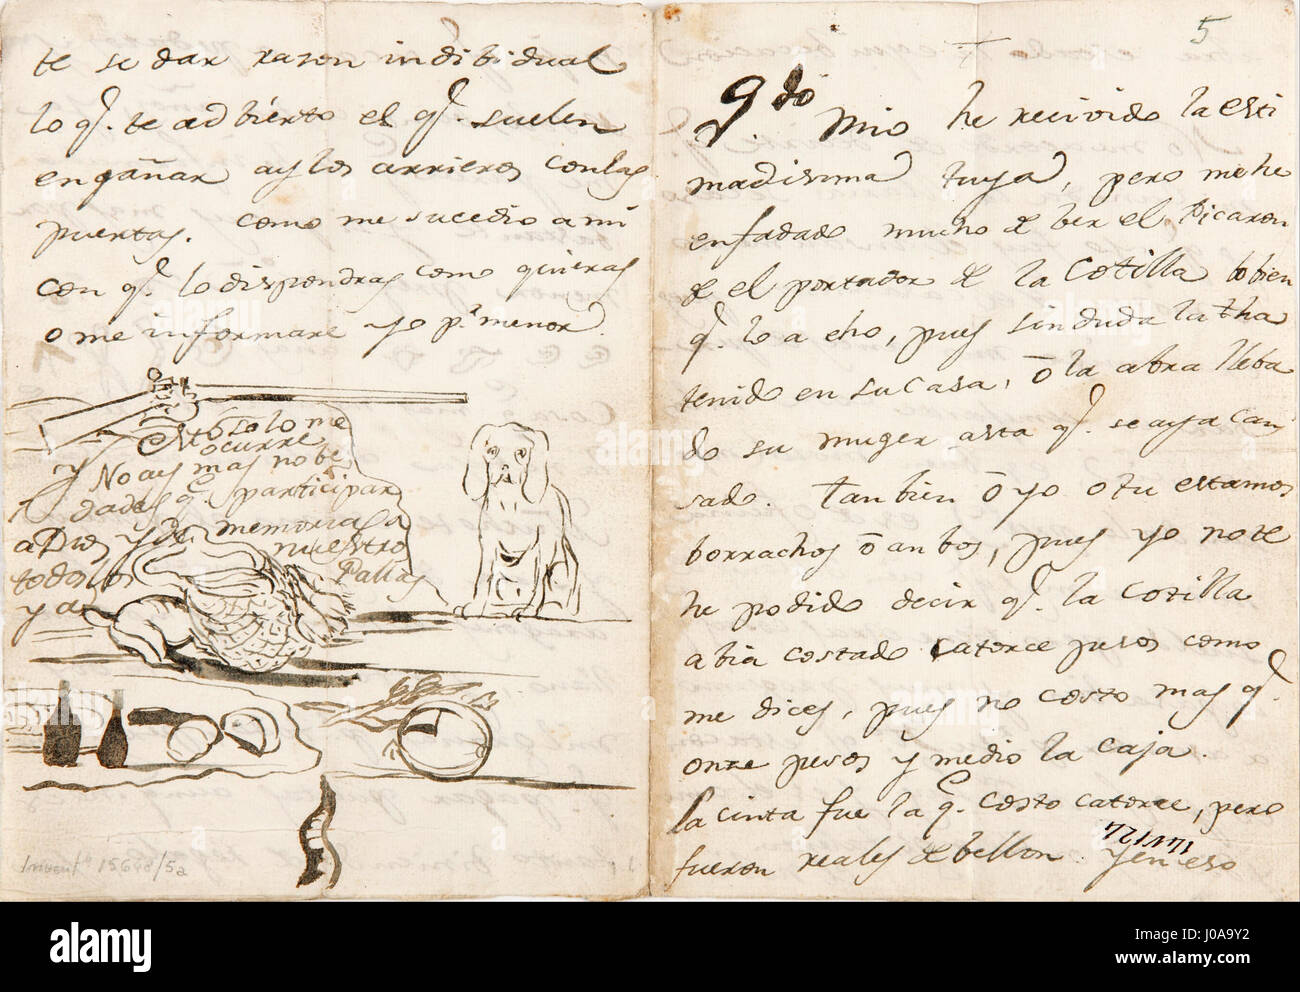 te se dar razon indibidual
lo q.e te adbierto el q.e suelen
engañar ay los arrieros con las
puertas. como me sucedio a mi
con q.e lo dispondras como quieras
o me informare yo p.r menor.
Esto solo me
ocurre
y No ay mas nobe
dades q.e participar
a Dios y da memorias a
todos los nuestro
y a Pallas
Invent.o 15648/52
5
Qdo Mio he recivido la esti
madisima tuya, pero me he
enfadado mucho de ber el Picaron
de el portador de la Cotilla lo bien
q.e lo a eho, pues sin duda la tha
tenido en su casa, ō la abra lleba
do su muger asta q.e se aya can
sado. Tanbien ō yo o tu estamos
borrachos ō anbos, pues yo no te
he podido decir q.e la cotilla
abia costado catorce pesos como
me dices, pues no costo mas q.e
once pesos y medio la caja
la cinta fue la q.e costo catorce, pero
fueron reales de bellon. y en eso
alamy
a
alamy
Image ID: J0A9Y2
www.alamy.com